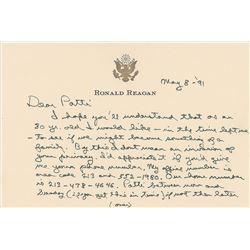 RONALD REAGAN
May 8 - '91
Dear Patti
I hope you'll understand that as an
80 yr. old I would like - in the time left
- to see if we might become something of a
family. By this I don't mean an invasion of
your privacy. I'd appreciate it if you'd give
me your phone number. My office number is
area code 213 and 552-1980. Our home number
is 213-478-4646. Patti between now and
Sunday (if you get this in time) if not then later
(over)